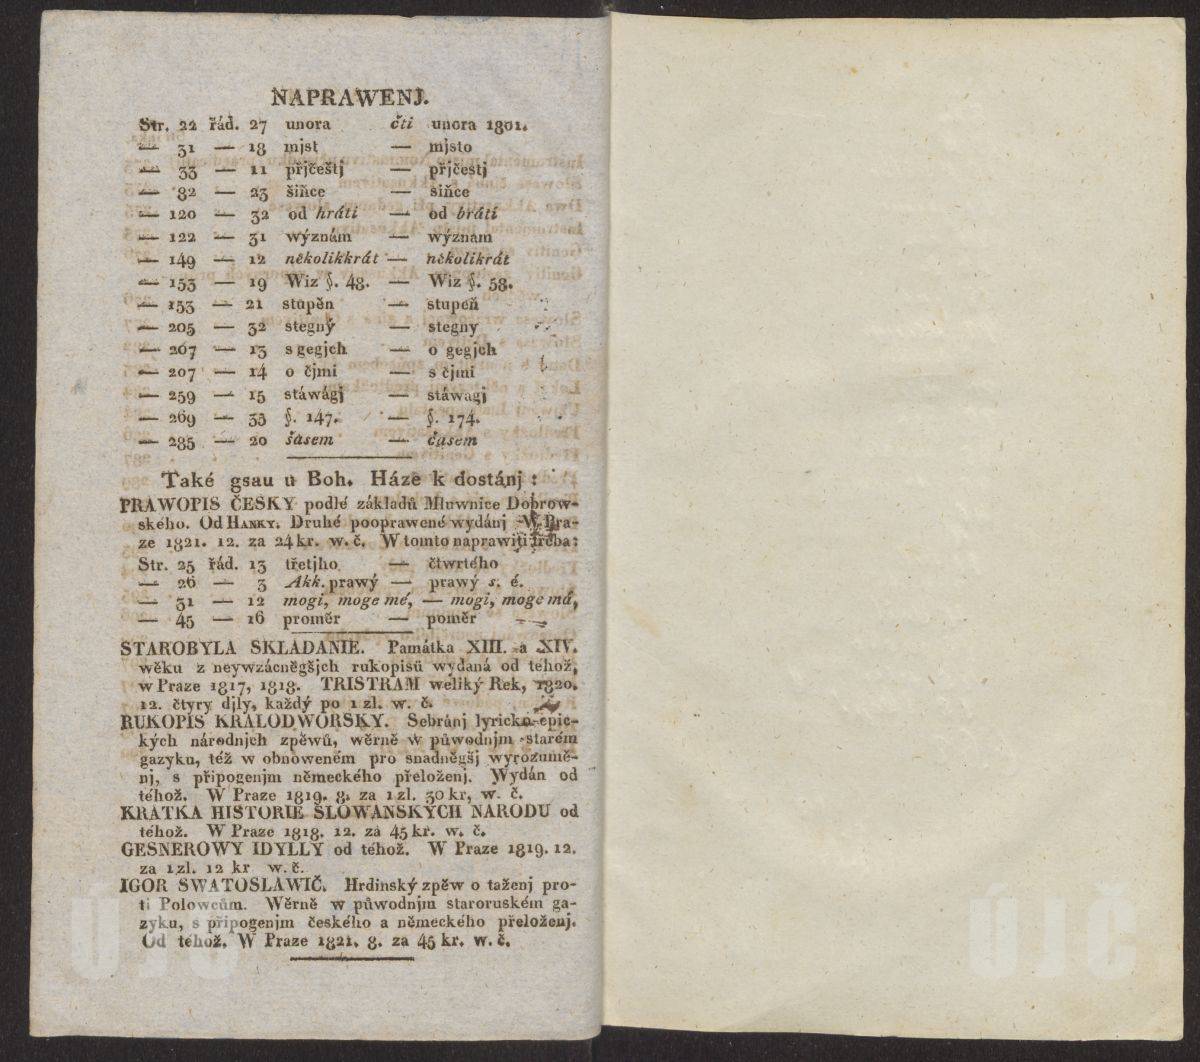 NAPRAWENJ.
Str. 22 řád. 27 unora čti unora 1801.
— 31 — 18 mjst — mjsto
— 33 — 11 přjčeštj — přjčestj
— 82 — 23 šiňce — siňce
— 120 — 32 od hráti — od bráti
— 122 — 31 wýznám — wýznam
— 149 — 12 několikkrát — několikrát
— 153 — 19 Wiz §. 48. — Wiz §. 58.
— 153 — 21 stupěn — stupeň
— 205 — 32 stegný — stegny
— 207 — 13 s gegjch — o gegjch
— 207 — 14 o čjmi — s čjmi
— 259 — 15 stáwágj — stáwagj
— 269 — 35 §. 147. — §. 174.
— 285 — 20 šasem — časem
Také gsau u Boh. Háze k dostánj:
PRAWOPIS ČESKY podlé základů Mluwnice Dobrow-
ského. Od HANKY. Druhé pooprawené wydánj W Pra-
ze 1821. 12. za 24 kr. w. č. W tomto naprawiti třeba:
Str. 25 řád. 13 třetjho — čtwrtého
— 26 — 3 Akk. prawý — prawý s. é.
— 31 — 12 mogi, moge mé, — mogi, moge má,
— 45 — 16 proměr — poměr
STAROBYLA SKLADANIE. Památka XIII. a XIV.
wěku z neywzácněgšjch rukopisů wydaná od téhož,
w Praze 1817, 1818. TRISTRAM weliký Rek, 1820.
12. čtyry djly, každý po 1 zl. w. č.
RUKOPIS KRALODWORSKY. Sebránj lyricko-epic-
kých národnjch zpěwů, wěrně w půwodnjm starém
gazyku, též w obnoweném pro snadněgšj wyrozumě-
nj, s připogenjm německého přeloženj. Wydán od
téhož. W Praze 1819. 8. za 1 zl. 30 kr, w. č.
KRATKA HISTORIE SLOWANSKYCH NARODU od
téhož. W Praze 1818. 12. za 45 kr. w. č.
GESNEROWY IDYLLY od téhož. W Praze 1819. 12.
za 1 zl. 12 kr w. č.
IGOR SWATOSLAWIČ. Hrdinský zpěw o taženj pro-
ti Polowcům. Wěrně w půwodnjm staroruském ga-
zyku, s připogenjm českého a německého přeloženj.
Od téhož. W Praze 1821. 8. za 45 kr. w. č.
ÚJČ
ÚJČ